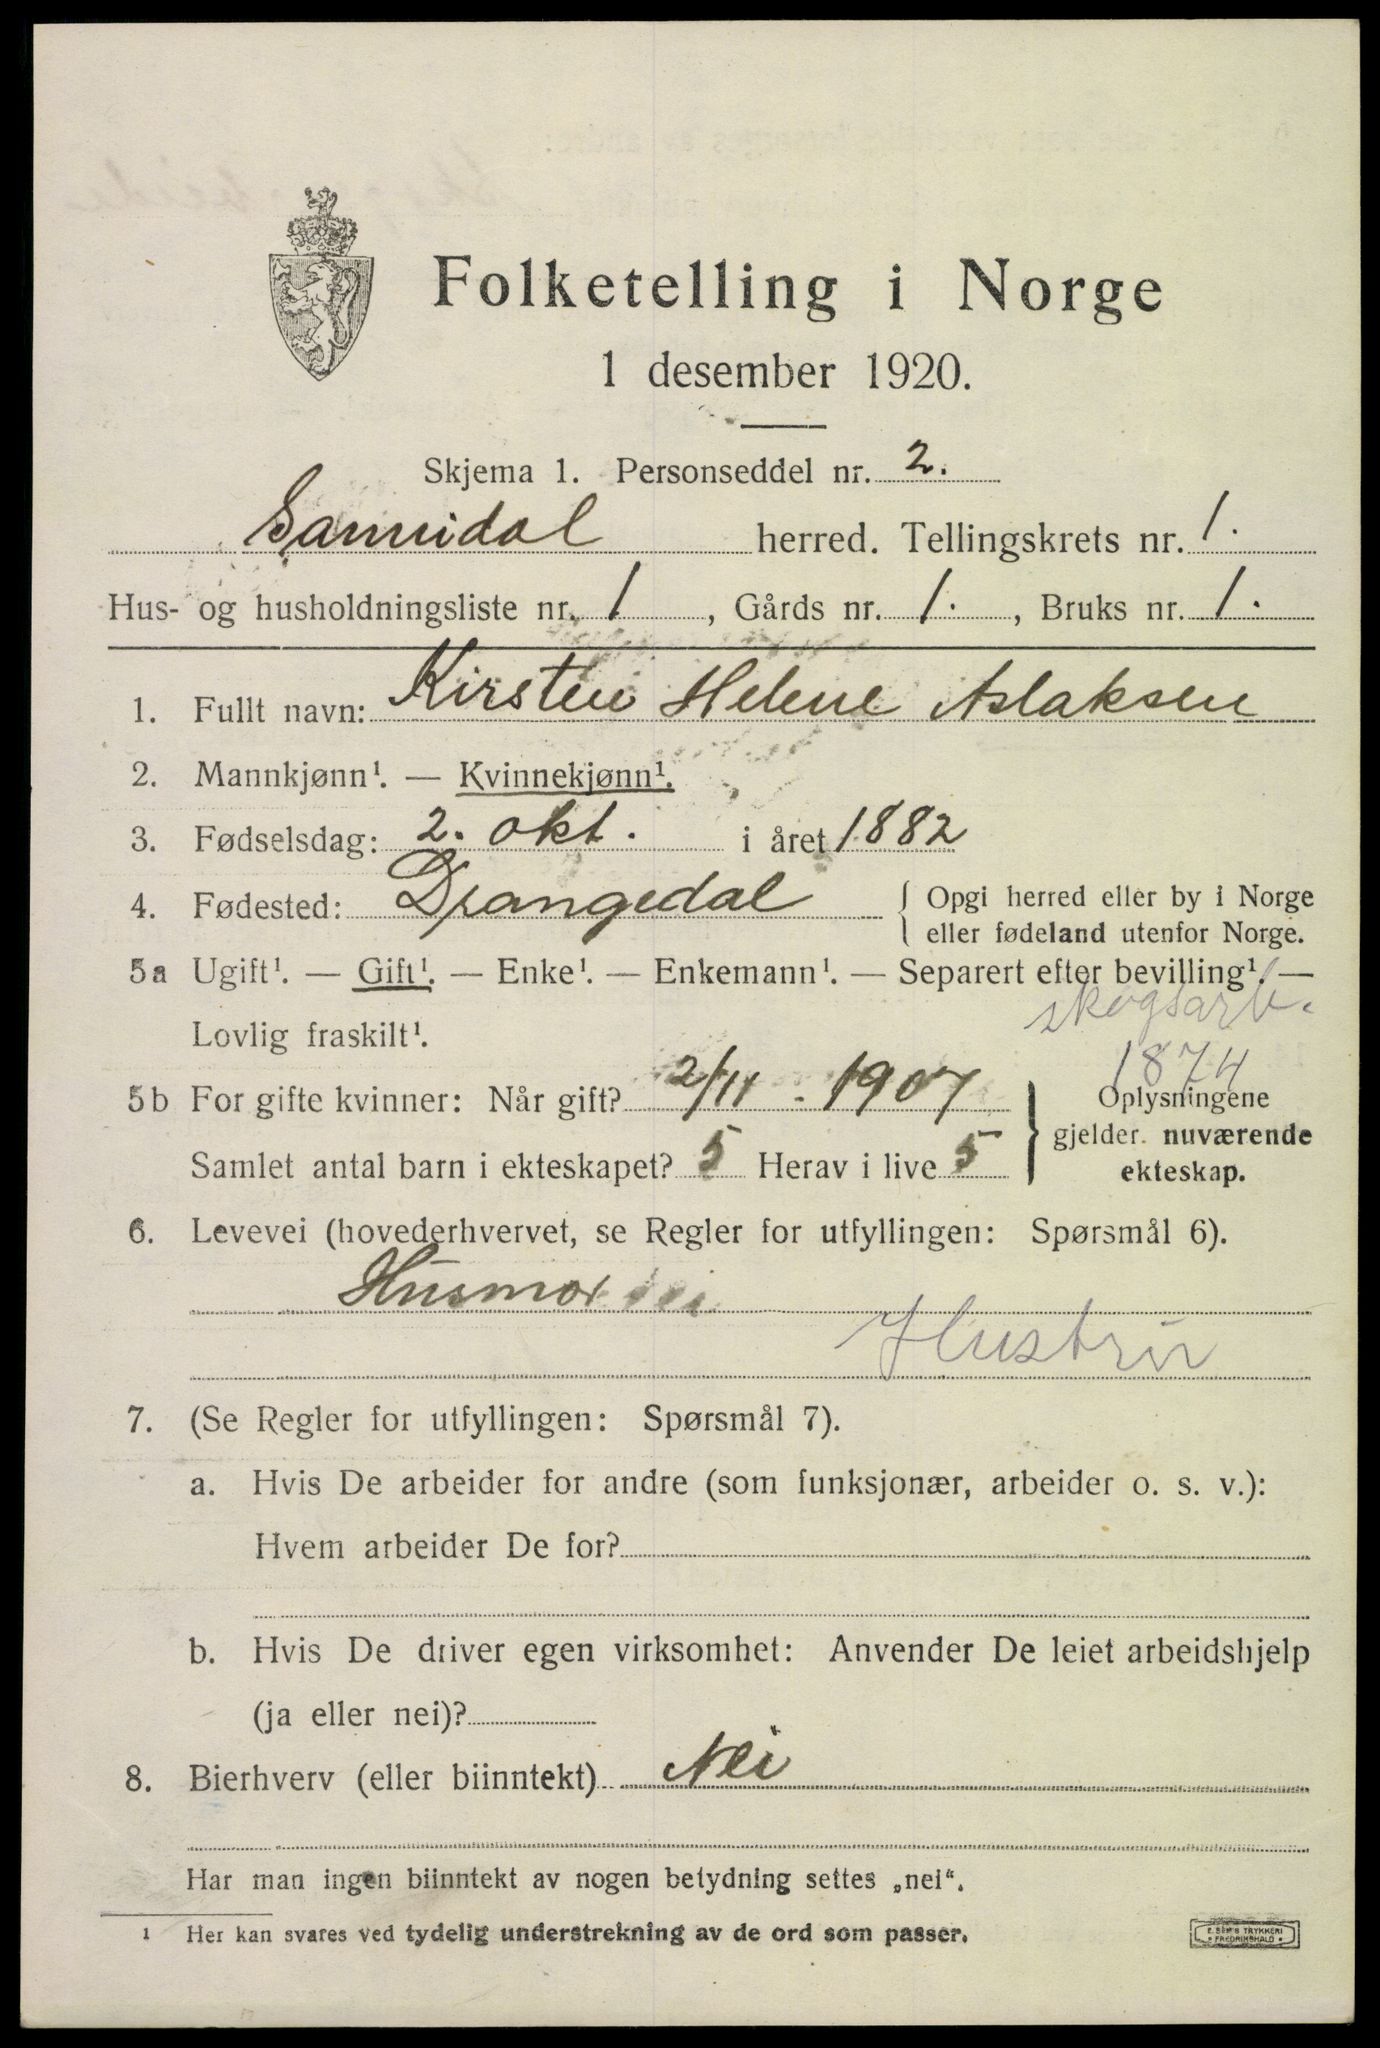 Folketelling i Norge
1 desember 1920.
Skjema 1. Personseddel nr. 2.
Sannidal herred. Tellingskrets nr. 1.
Hus- og husholdningsliste nr. 1, Gårds nr. 1., Bruks nr. 1.
1. Fullt navn: Kirsten Helene Aslaksen
2. Mannkjønn¹. — Kvinnekjønn¹.
3. Fødselsdag: 2. okt. i året 1882
4. Fødested: Drangedal { Opgi herred eller by i Norge
eller fødeland utenfor Norge.
5a Ugift¹. — Gift¹. — Enke¹. — Enkemann¹. — Separert efter bevilling¹. —
skogsarb.
Lovlig fraskilt¹.
1874
5b For gifte kvinner: Når gift? 2/11 - 1907
Samlet antal barn i ekteskapet? 5 Herav i live 5
} Oplysningene
gjelder nuværende
ekteskap.
6. Levevei (hovederhvervet, se Regler for utfyllingen: Spørsmål 6).
Husmor
Hustru
7. (Se Regler for utfyllingen: Spørsmål 7).
a. Hvis De arbeider for andre (som funksjonær, arbeider o. s. v.):
Hvem arbeider De for?
b. Hvis De driver egen virksomhet: Anvender De leiet arbeidshjelp
(ja eller nei)?
8. Bierhverv (eller biinntekt) Nei
Har man ingen biinntekt av nogen betydning settes „nei“.
¹ Her kan svares ved tydelig understrekning av de ord som passer.
E. SEM'S TRYKKERI
* FREDRIKSHALD *